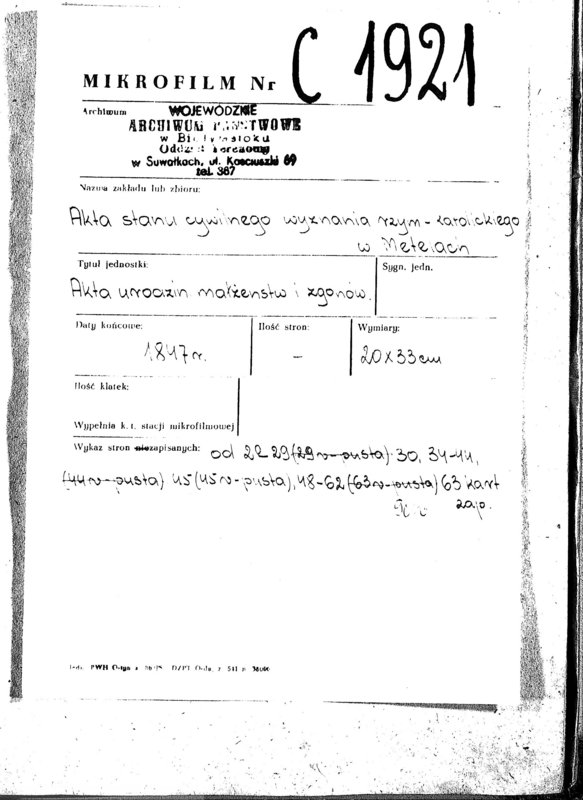 MIKROFILM Nr C 1921
Archiwum
WOJEWÓDZKIE
ARCHIWUM PAŃSTWOWE
w Białymstoku
Oddział Terenowy
w Suwałkach, ul. Kościuszki 69
tel. 367
Nazwa zakładu lub zbioru:
Akta stanu cywilnego wyznania rzym-katolickiego
w Metelach
Tytuł jednostki:
Sygn. jedn.
Akta urodzin małżenstw i zgonów.
Daty końcowe:
Ilość stron:
Wymiary:
1847 r.
–
20x33cm
Ilość klatek:
Wypełnia k. t. stacji mikrofilmowej
Wykaz stron niezapisanych: od 29(29v-pusta) 30, 34-44,
(44v-pusta) 45(45v-pusta), 48-62(63v-pusta) 63 kart
zap.